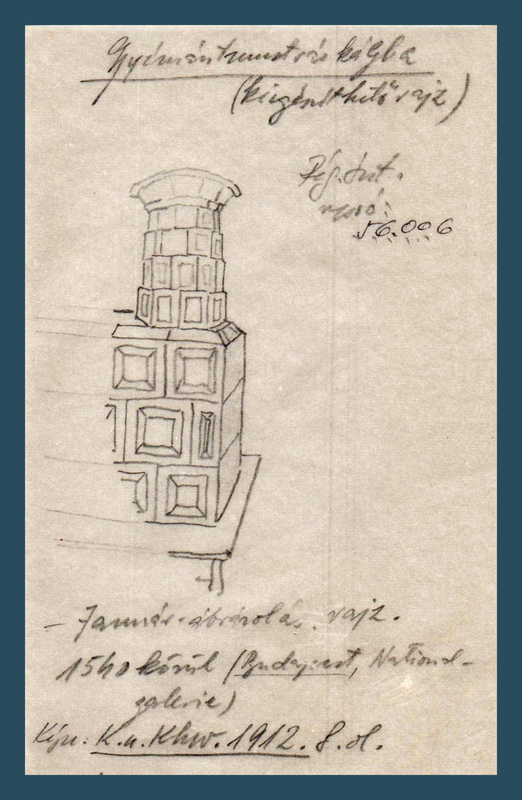 Gyémántmustrás kályha
(kiegészíthető rajz)
Rég. Int.
56.006
– Január-ábrázolás, rajz.
1540 körül (Budapest, National-
galerie)
K. u. Khw. 1912. 8. d.